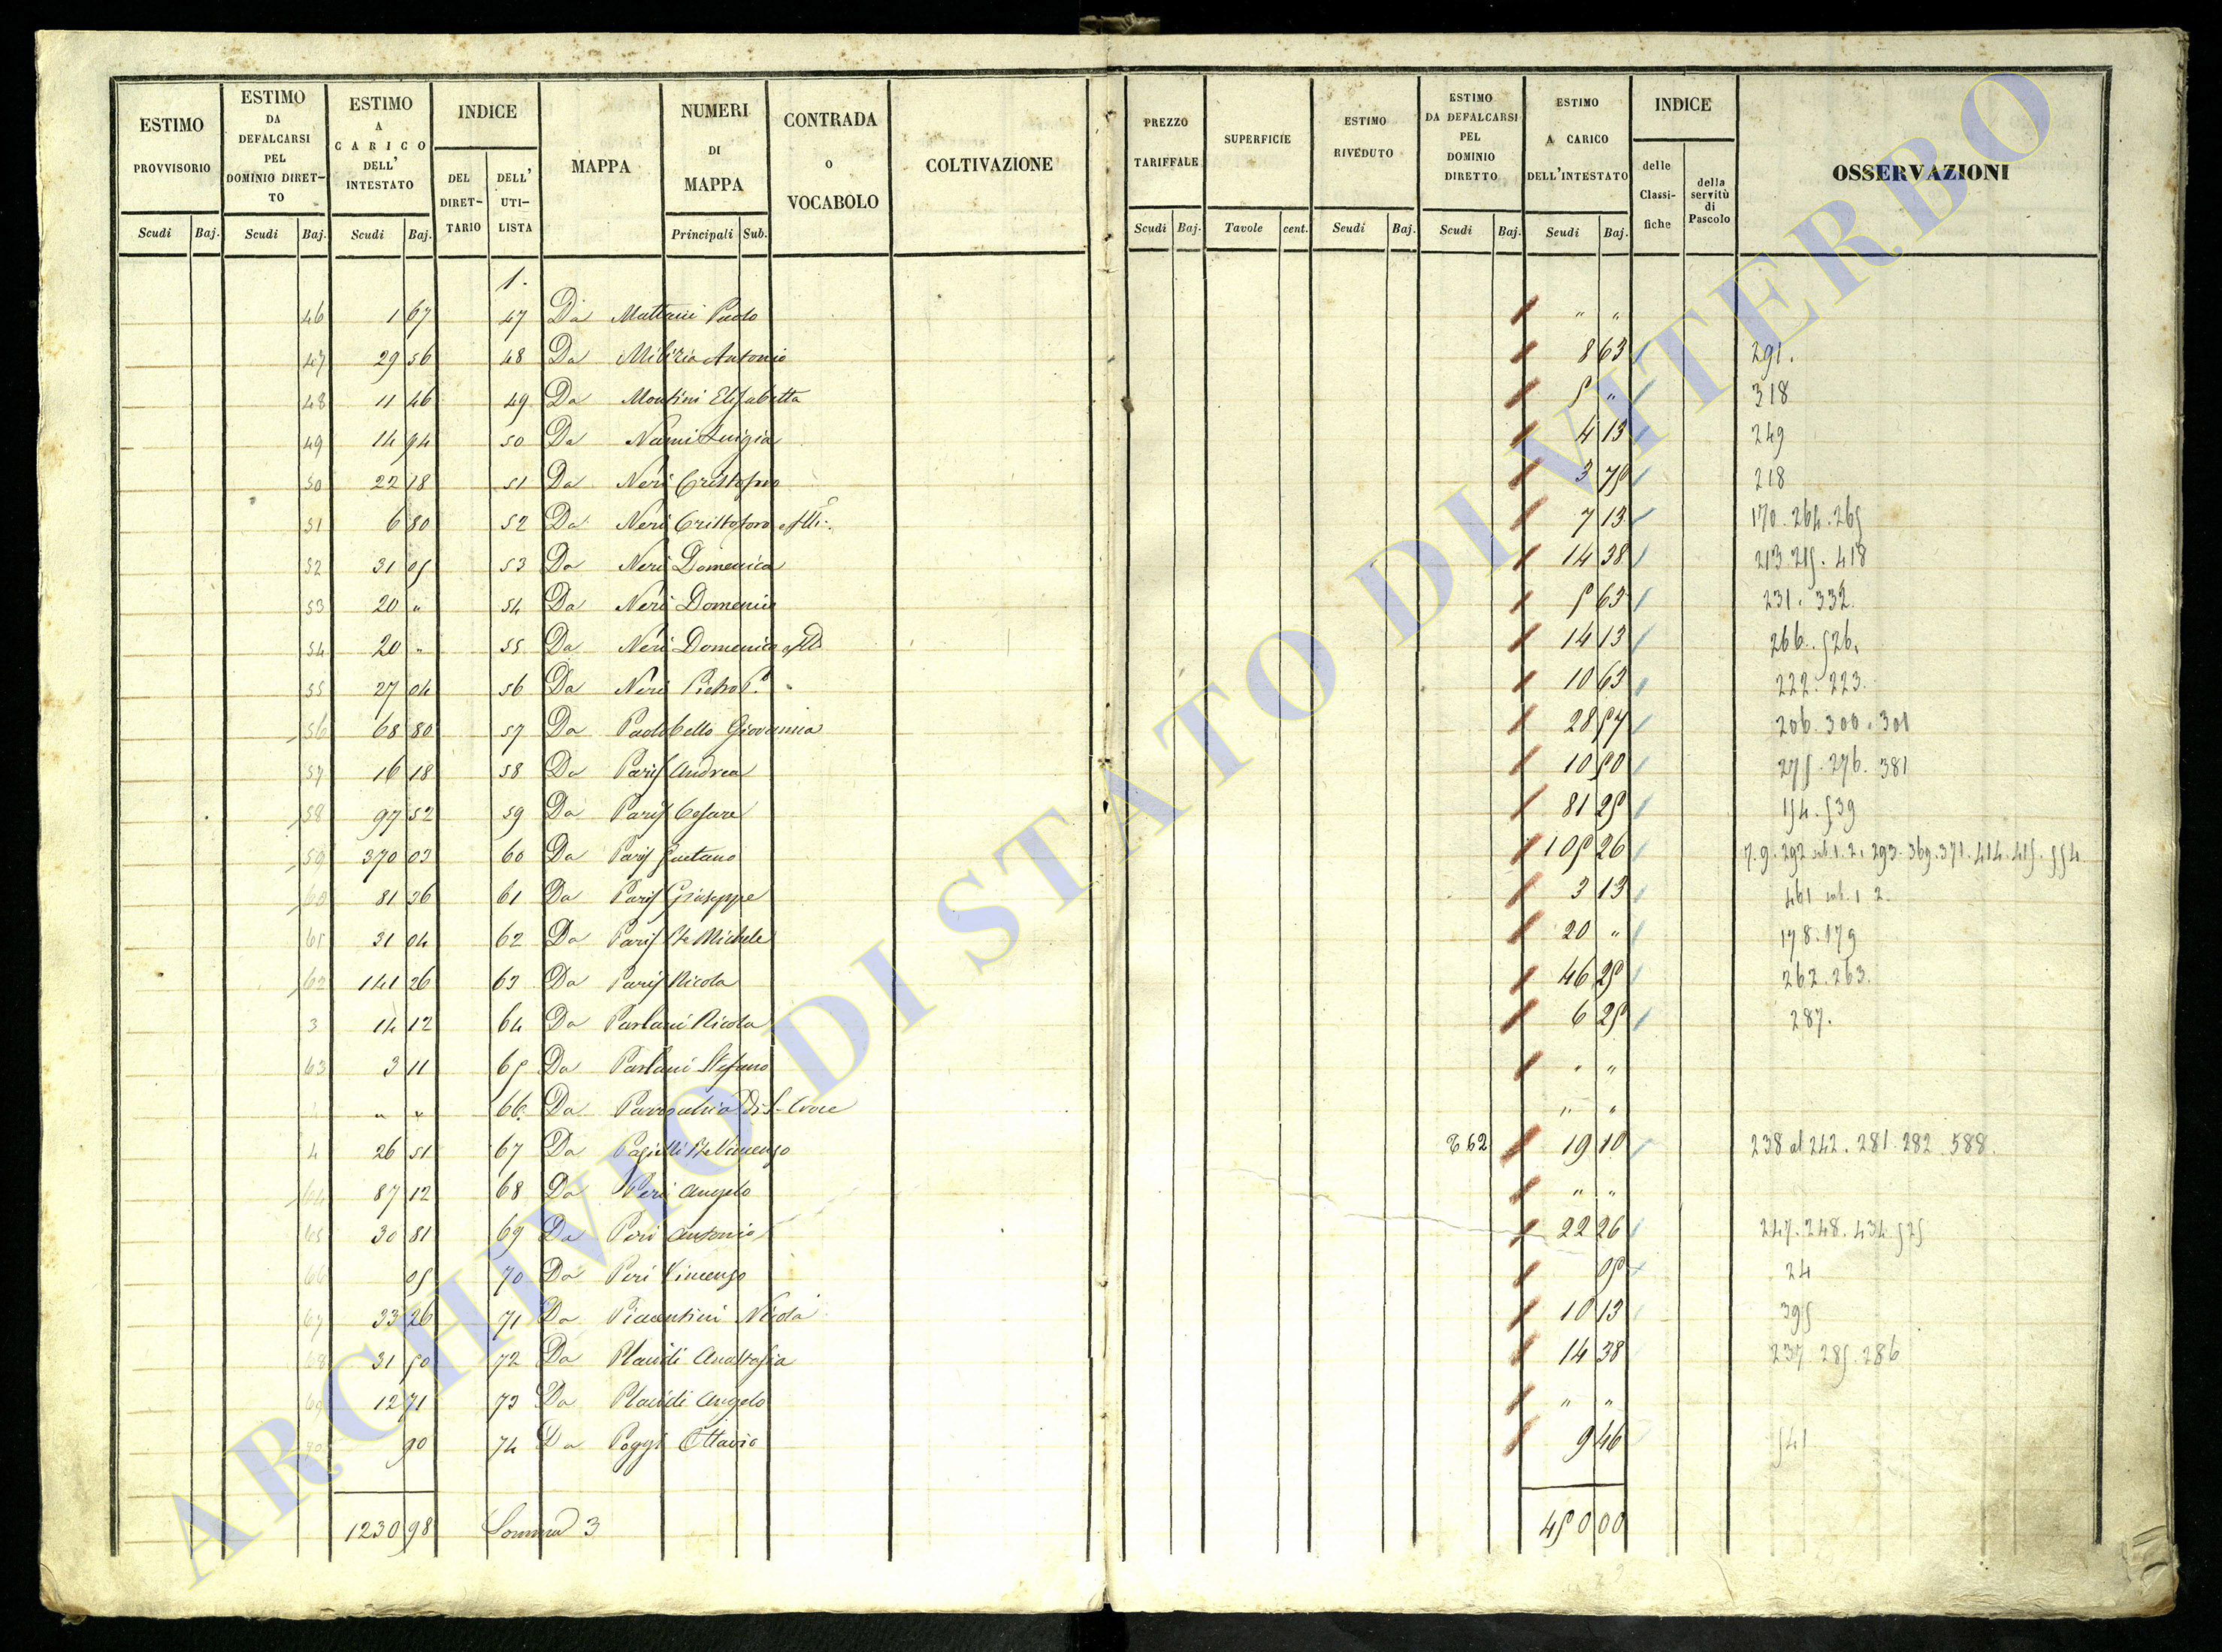 ESTIMO PROVVISORIO
ESTIMO DA DEFALCARSI PEL DOMINIO DIRET-TO
ESTIMO A CARICO DELL' INTESTATO
INDICE
DEL DIRET-TARIO
DELL' UTI-LISTA
MAPPA
NUMERI DI MAPPA
CONTRADA O VOCABOLO
COLTIVAZIONE
PREZZO TARIFFALE
SUPERFICIE
ESTIMO RIVEDUTO
ESTIMO DA DEFALCARSI PEL DOMINIO DIRETTO
ESTIMO A CARICO DELL'INTESTATO
INDICE
delle Classi-fiche
della servitù di Pascolo
OSSERVAZIONI
Scudi Baj. Scudi Baj. Scudi Baj. Principali Sub. Scudi Baj. Tavole cent. Scudi Baj. Scudi Baj. Scudi Baj.
1.
46 1 67 47 Da Paolo " "
47 29 56 48 Da Milizia Antonio 8 63 291.
48 11 46 49 Da Montini Elisabetta 5 " 318
49 14 94 50 Da Luigia 4 13 249
50 22 18 51 Da Neri Cristoforo 3 75 218
51 6 80 52 Da Neri Cristoforo 7 13 170. 264. 265
52 31 05 53 Da Neri Domenica 14 38 213. 215. 418
53 20 " 54 Da Neri Domenico 5 63 231. 332.
54 20 " 55 Da Neri Domenico 14 13 266. 526.
55 27 04 56 Da Neri Pietro P. 10 63 222. 223.
56 68 80 57 Da Paolobello Giovanna 28 57 206. 300. 301
57 16 18 58 Da Paris Andrea 10 50 275. 276. 381
58 97 52 59 Da Paris Cesare 81 25 154. 539
59 370 03 60 Da Paris Gaetano 105 26 7. 9. 292 sub. 1. 2. 293. 369. 371. 414. 415. 554
60 81 36 61 Da Paris Giuseppe 3 13 461 sub. 1 2.
61 31 04 62 Da Paris Michele 20 " 178. 179
62 141 26 63 Da Paris Nicola 46 25 262. 263.
3 14 12 64 Da Parlani Nicola 6 25 287.
63 3 11 65 Da Parlani Stefano " "
" " 66. Da Parrocchia di S. Croce " "
4 26 51 67 Da Vincenzo 62 19 10 238 al 242. 281. 282. 588.
64 87 12 68 Da Peri Angelo " "
65 30 81 69 Da Peri Antonio 22 26 247. 248. 434. 525
66 05 70 Da Peri Vincenzo 05 24
67 33 26 71 Da Piacentini Nicola 10 13 395
68 31 50 72 Da Placidi Anastasia 14 38 237. 285. 286
69 12 71 73 Da Placidi Angelo " "
70 90 74 Da Poggi Ottavio 9 46 541
1230 98 Somma 3 450 00
ARCHIVIO DI STATO DI VITERBO